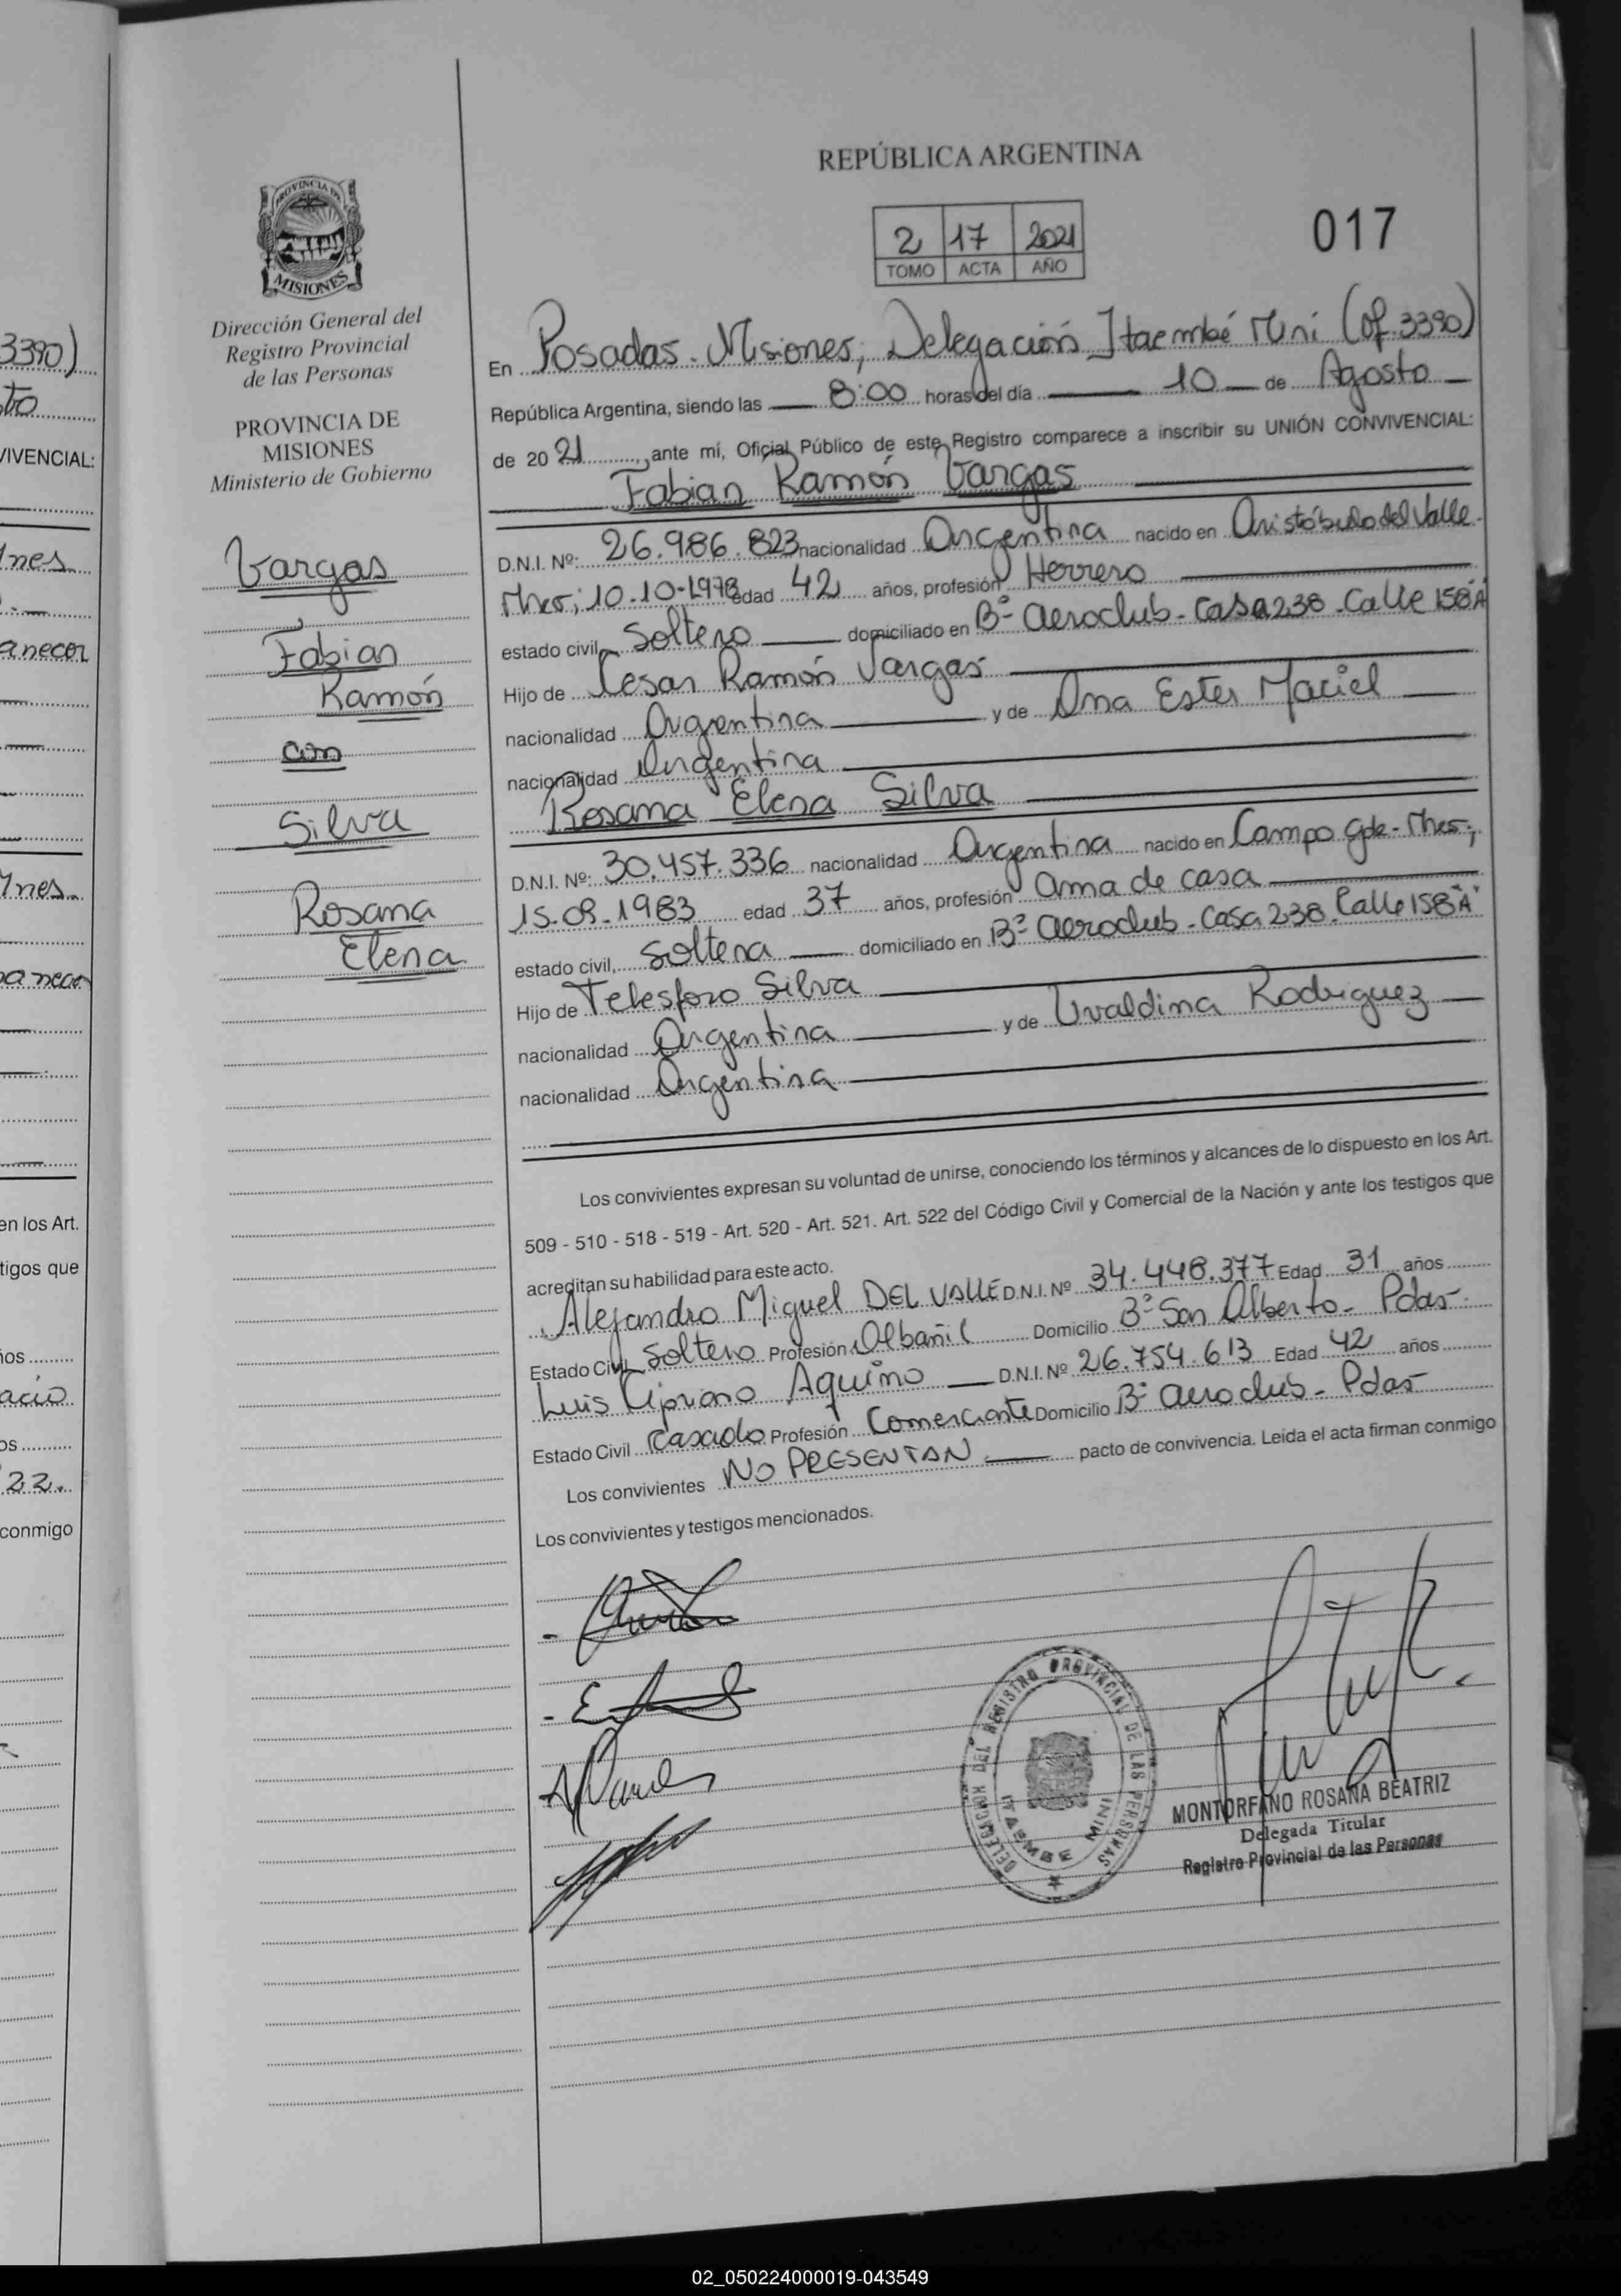 REPÚBLICA ARGENTINA
2 17 2021
TOMO ACTA AÑO
017
PROVINCIA DE
MISIONES
Dirección General del
Registro Provincial
de las Personas
PROVINCIA DE
MISIONES
Ministerio de Gobierno
Vargas
Fabian
Ramón
con
Silva
Rosana
Elena
En Posadas. Misiones, Delegación Itaembé Miní (Of. 3390)
República Argentina, siendo las 8:00 horas del día 10 de Agosto
de 2021, ante mí, Oficial Público de este Registro comparece a inscribir su UNIÓN CONVIVENCIAL:
Fabian Ramón Vargas
D.N.I. Nº: 26.986.823 nacionalidad Argentina nacido en Aristóbulo del Valle
Mnes; 10-10-1978 edad 42 años, profesión Herrero
estado civil, Soltero domiciliado en Bº Aeroclub - Casa 238 - Calle 158 "A"
Hijo de Cesar Ramón Vargas
nacionalidad Argentina y de Ana Ester Maciel
nacionalidad Argentina
Rosana Elena Silva
D.N.I. Nº: 30.457.336 nacionalidad Argentina nacido en Campo Gde - Mnes;
15-09-1983 edad 37 años, profesión Ama de casa
estado civil, Soltera domiciliado en Bº Aeroclub - Casa 238 - Calle 158 "A"
Hijo de Telesforo Silva
nacionalidad Argentina y de Uvaldina Rodriguez
nacionalidad Argentina
Los convivientes expresan su voluntad de unirse, conociendo los términos y alcances de lo dispuesto en los Art.
509 - 510 - 518 - 519 - Art. 520 - Art. 521. Art. 522 del Código Civil y Comercial de la Nación y ante los testigos que
acreditan su habilidad para este acto.
Alejandro Miguel DEL VALLE D.N.I. Nº 34.448.377 Edad 31 años
Estado Civil Soltero Profesión Albañil Domicilio Bº San Alberto - Pdas
Luis Cipriano Aquino D.N.I. Nº 26.754.613 Edad 42 años
Estado Civil Casado Profesión Comerciante Domicilio Bº Aeroclub - Pdas
Los convivientes NO PRESENTAN pacto de convivencia. Leída el acta firman conmigo
Los convivientes y testigos mencionados.
DELEGACION DEL REGISTRO PROVINCIAL DE LAS PERSONAS
ITAEMBE MINI
MONTORFANO ROSANA BEATRIZ
Delegada Titular
Registro Provincial de las Personas
02_050224000019-043549